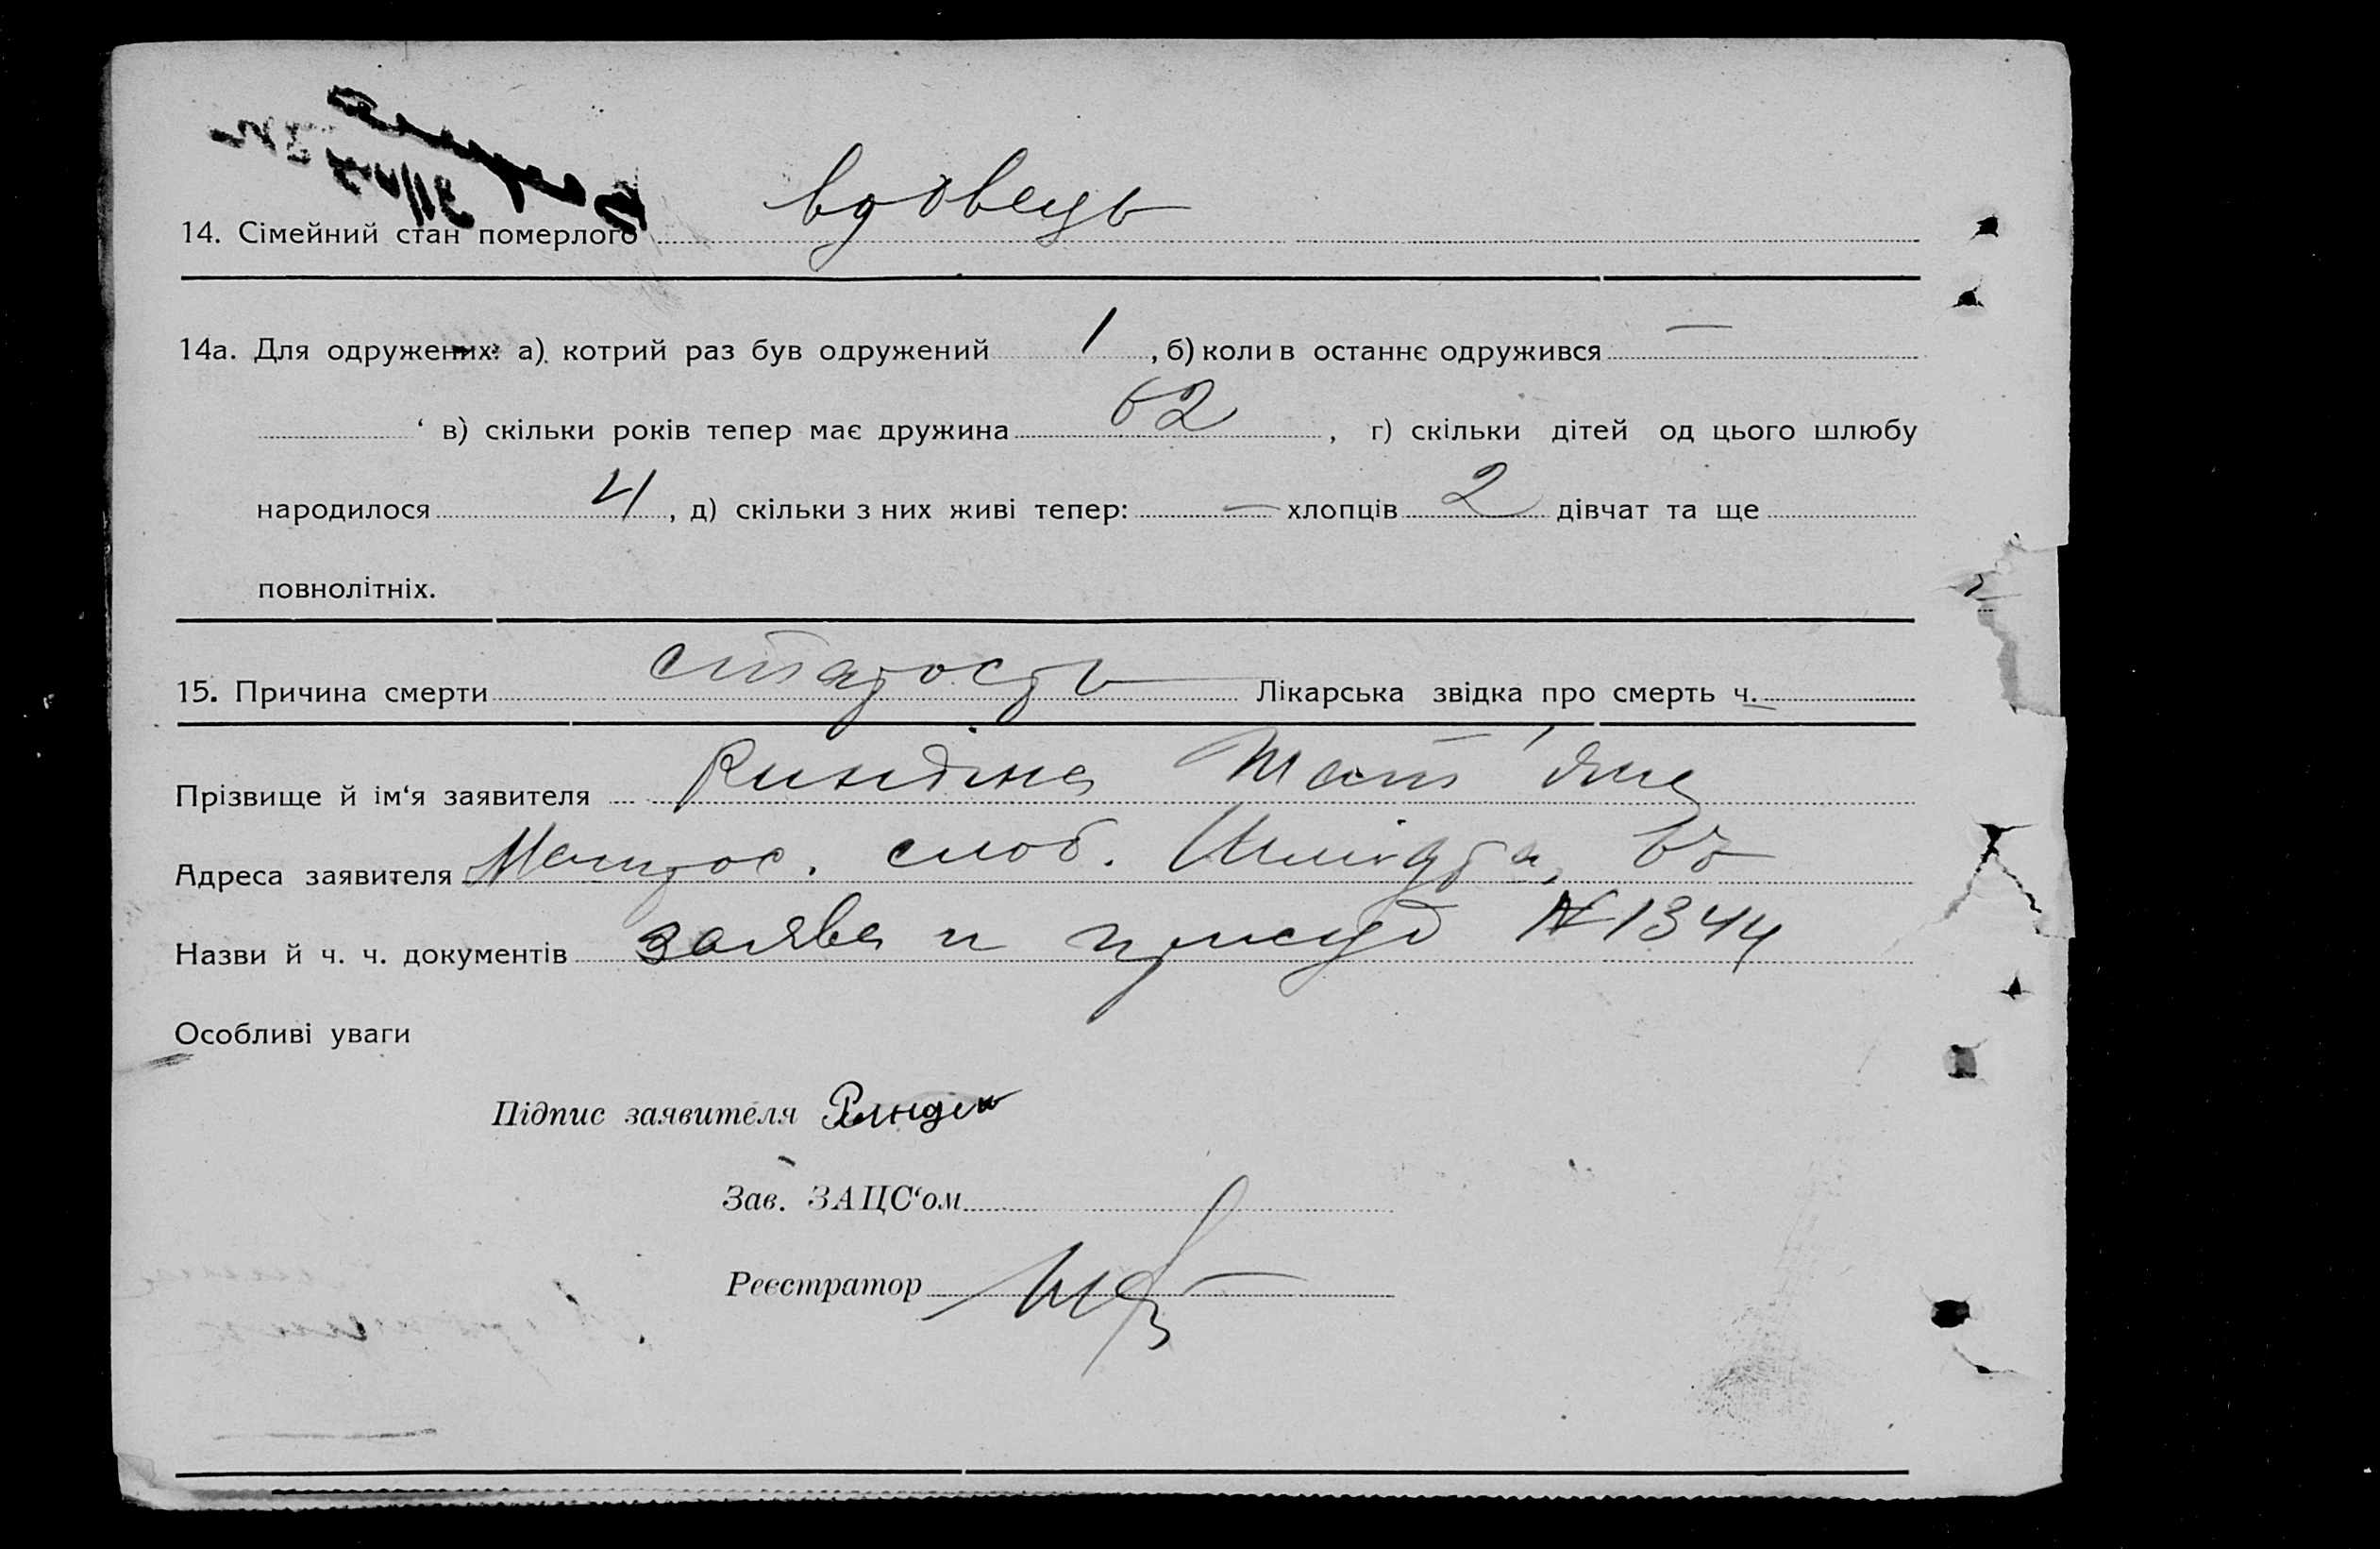 14. Сімейний стан померлого вдовець
14а. Для одружених: а) котрий раз був одружений 1, б) коли в останнє одружився —
в) скільки років тепер має дружина 62, г) скільки дітей од цього шлюбу
народилося 4, д) скільки з них живі тепер: — хлопців 2 дівчат та ще
повнолітніх.
15. Причина смерти старость Лікарська звідка про смерть ч. —
Прізвище й ім‘я заявителя Риндіна Тат'яна
Адреса заявителя Матрос. слоб. Шмідта,
Назви й ч. ч. документів заява и N 1344
Особливі уваги
Підпис заявителя
Зав. ЗАЦС‘ом
Реєстратор